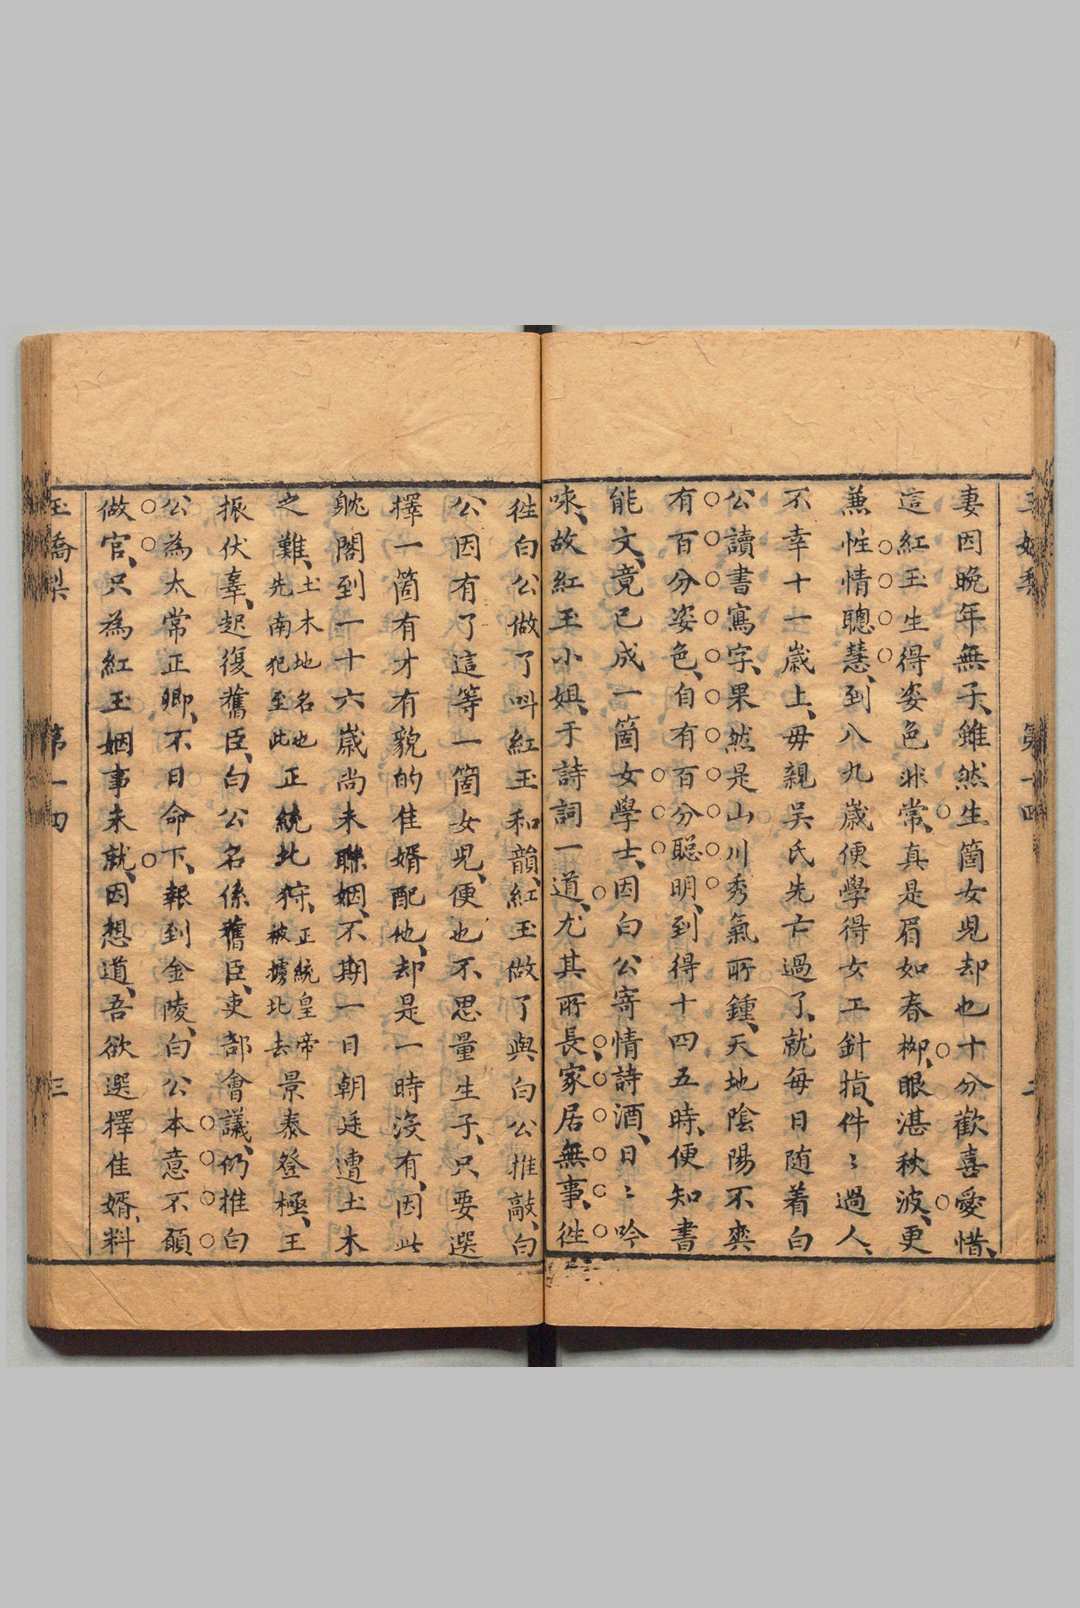 妻因晚年無子、雖然生箇女兒却也十分歡喜愛惜、
這紅玉生得姿色非常、真是眉如春柳、眼湛秋波、更
兼性情聰慧、到八九歲便學得女工針指、件〻過人、
不幸十一歲上、毋親吳氏先亡過了、就每日随着白
公讀書寫字、果然是山川秀氣所鍾、天地陰陽不爽
有百分姿色、自有百分聪明、到得十四五時、便知書
能文、竟已成一箇女學士、因白公寄情詩酒、日〻吟
咏、故紅玉小姐、于詩詞一道、尤其所長、家居無事、徃
徃白公做了叫紅玉和韻、紅玉做了與白公推敲、白
公因有了這等一箇女兒、便也不思量生子、只要選
擇一箇有才有貌的佳婿配他、却是一時沒有、因此
躭閣到一十六歲尚未聯姻、不期一日朝廷遭土木
之難、土木地名也先南犯至此正統北狩、正統皇帝被擄北去景泰登極、王
振伏辜、起復舊臣、白公名係舊臣、吏部會議、仍推白
公為太常正卿、不日命下、報到金陵、白公本意不願
做官、只為紅玉姻事未就、因想道、吾欲選擇佳婿、料
玉喬梨
第一回
三